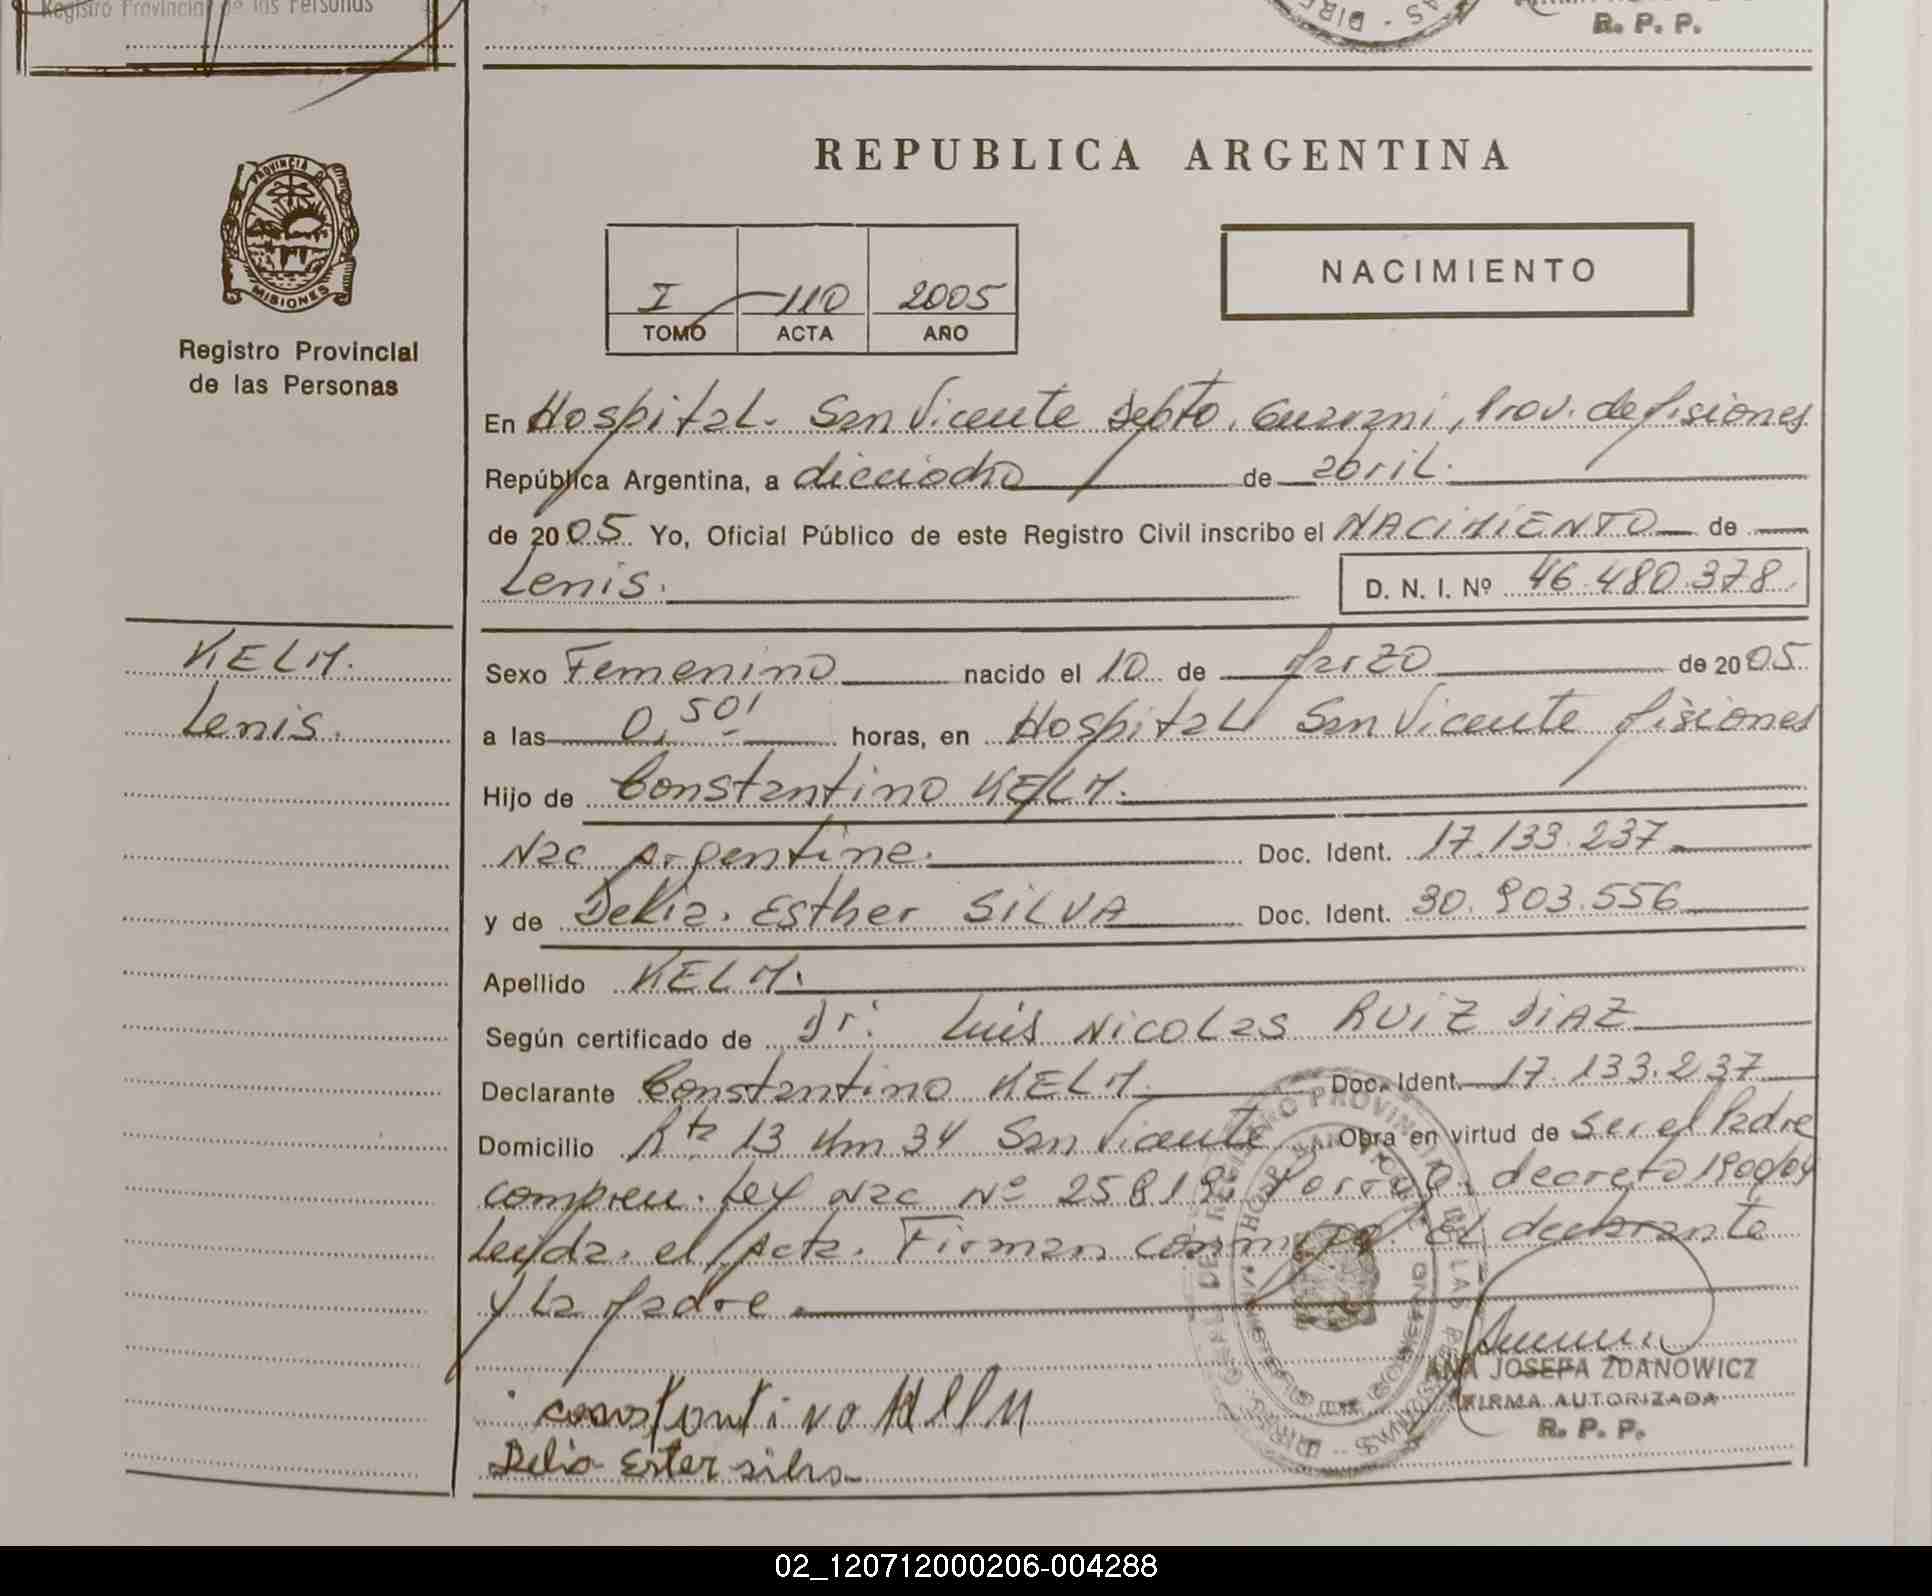 Registro Provincial de las Personas
R. P. P.
REPUBLICA ARGENTINA
PROVINCIA D
MISIONES
Registro Provincial
de las Personas
I 110 2005
TOMO ACTA AÑO
NACIMIENTO
En Hospital San Vicente Depto. Guarani, Prov. de Misiones
República Argentina, a dieciocho de abril.
de 2005 Yo, Oficial Público de este Registro Civil inscribo el NACIMIENTO de
Lenis. D. N. I. Nº 46.480.378.
KELM.
Lenis.
Sexo Femenino nacido el 10 de Marzo de 2005.
a las 0,50' horas, en Hospital San Vicente Misiones
Hijo de Constantino KELM.
Nac Argentina. Doc. Ident. 17.133.237
y de Delia. Esther SILVA Doc. Ident. 30.903.556
Apellido KELM.
Según certificado de Dr. Luis NICOLas RUIZ DIAZ
Declarante Constantino KELM. Doc. Ident. 17.133.237
Domicilio Rta 13 Km 34 San Vicente Obra en virtud de ser el Padre
compren. Ley Nac Nº 25819. decreto 1900/04
Leyda. el Acta. Firman conmigo. El declarante
y La Madre.
ANA JOSEFA ZDANOWICZ
FIRMA AUTORIZADA
constantino Kelm
R. P. P.
Delia Ester silva
02_120712000206-004288